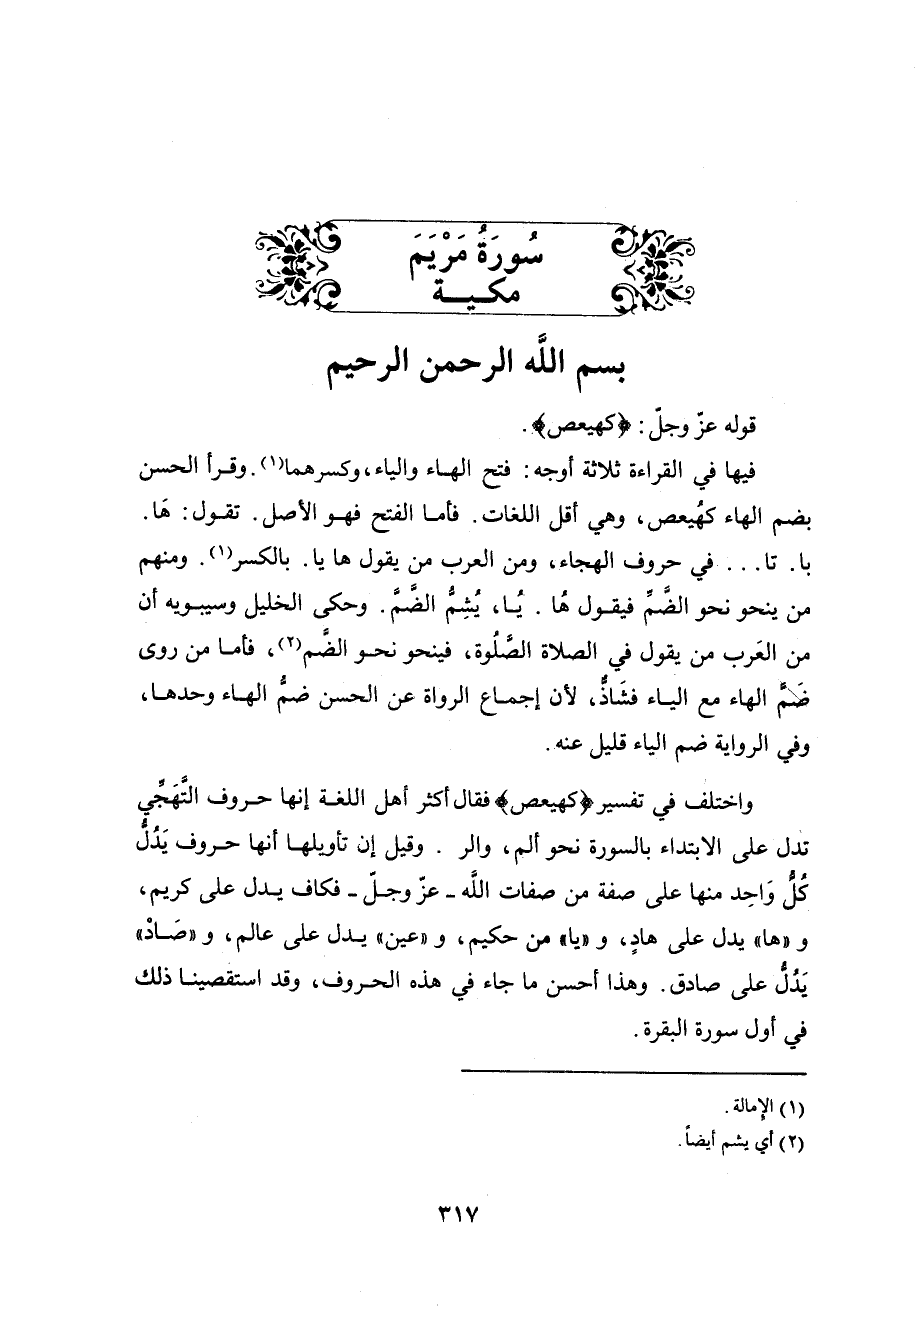 سُورَةُ مَرْيَمَ
مكـيـــة
بسم اللَّه الرحمن الرحيم
قوله عزّ وجلّ: ﴿كهيعص﴾.
فيها في القراءة ثلاثة أوجه: فتح الهـاء والياء، وكسرهما(١). وقـرأ الحسن
بضم الهاء كهُيعص، وهي أقل اللغات. فأمـا الفتح فهـو الأصل. تقـول: هَا.
با. تا... في حروف الهجاء، ومن العرب من يقول ها يا. بالكسر(١). ومنهم
من ينحو نحو الضَّمِّ فيقـول هُا . يُـا، يُشِمُّ الضَّمَّ. وحكى الخليل وسيبـويه أن
من العَرب من يقول في الصلاة الصَّلُوة، فينحو نحـو الضَّم(٢)، فأمـا من روى
ضَمَّ الهاء مع اليـاء فشَاذٌّ، لأن إجمـاع الرواة عن الحسن ضمُّ الهـاء وحدهـا،
وفي الرواية ضم الياء قليل عنه.
واختلف في تفسير ﴿كهيعص﴾ فقال أكثر أهل اللغـة إنها حـروف التَّهَجِّي
تدل على الابتداء بالسورة نحو ألم، والر . وقيل إن تأويلهـا أنها حـروف يَدُلُّ
كُلُّ وَاحِد منها على صفة من صفات اللَّه ـ عزّ وجـلّ ـ فكاف يـدل على كريم،
و «ها» يدل على هادٍ، و «يا» من حكيم، و «عين» يـدل على عالم، و «صَـادْ»
يَدُلُّ على صادق. وهذا أحسن ما جاء في هذه الحـروف، وقد استقصينـا ذلك
في أول سورة البقرة.
(١) الإمالة.
(٢) أي يشم أيضاً.
٣١٧